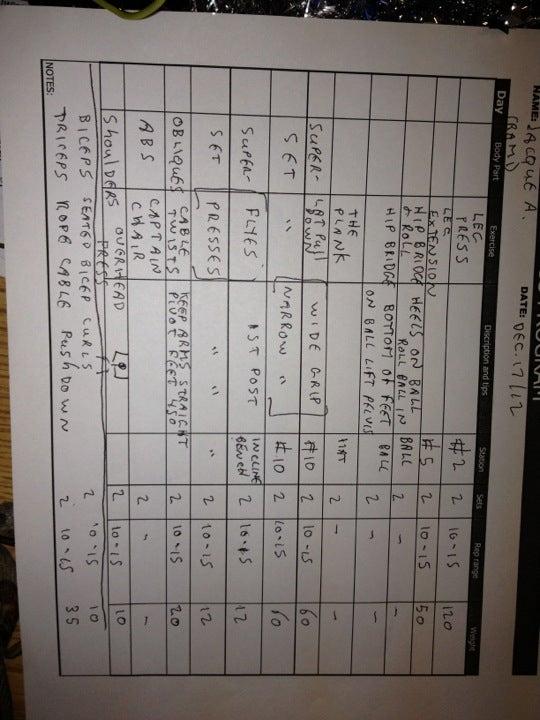 PROGRAM
NAME: JACQUE A. DATE: DEC. 17/12
(RAMI)
Day Body Part Exercise Discription and tips Station Sets Rep range Weight
LEG PRESS #2 2 10-15 120
LEG EXTENSION #5 2 10-15 50
HIP BRIDGE & ROLL HEELS ON BALL ROLL BALL IN BALL 2 - -
HIP BRIDGE BOTTOM OF FEET ON BALL LIFT PELVIS BALL 2 - -
THE PLANK MAT 2 - -
SUPER- LAT PULL DOWN WIDE GRIP #10 2 10-15 60
SET " NARROW " #10 2 10-15 60
SUPER- FLYES 1ST POST INCLINE BENCH 2 10-15 12
SET PRESSES " " " 2 10-15 12
OBLIQUES CABLE TWISTS KEEP ARMS STRAIGHT PIVOT FEET 45° 2 10-15 20
ABS CAPTAIN CHAIR 2 " -
SHOULDERS OVERHEAD PRESS 2 10-15 10
BICEPS SEATED BICEP CURLS 2 10-15 10
TRICEPS ROPE CABLE PUSHDOWN 2 10-15 35
NOTES: